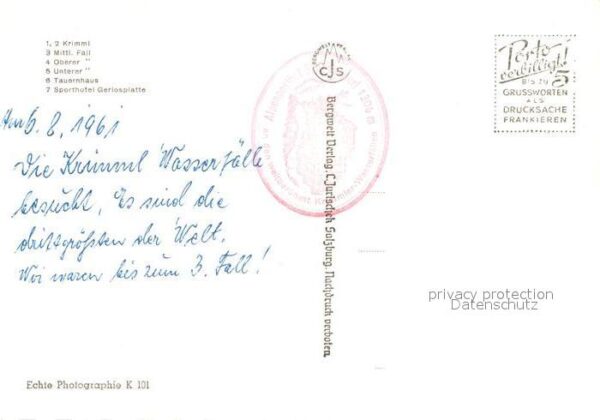 1, 2 Krimml
3 Mittl. Fall
4 Oberer "
5 Unterer "
6 Tauernhaus
7 Sporthotel Gerlosplatte
6. 8. 1961
Die Krimml Wasserfälle
besucht. Es sind die
drittgrößten der Welt.
Wir waren bis zum 3. Fall!
Echte Photographie K 101
CJS
Bergwelt Verlag, C. Jurischek Salzburg. Nachdruck verboten.
Porto
verbilligt!
BIS ZU 5
GRUSSWORTEN
ALS
DRUCKSACHE
FRANKIEREN
privacy protection
Datenschutz